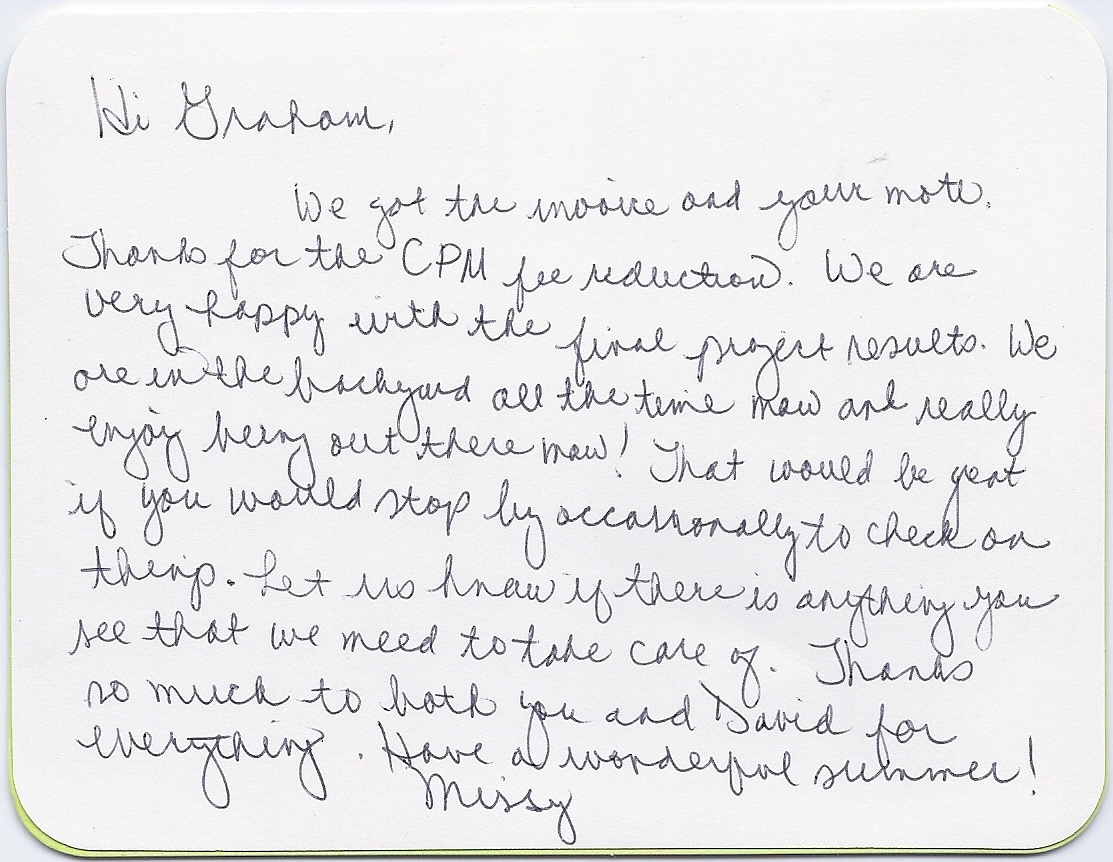 Hi Graham,
We got the invoice and your note.
Thanks for the CPM fee reduction. We are
very happy with the final project results. We
are in the backyard all the time now and really
enjoy being out there now! That would be great
if you would stop by occassionally to check on
things. Let us know if there is anything you
see that we need to take care of. Thanks
so much to both you and David for
everything. Have a wonderful summer!
Missy